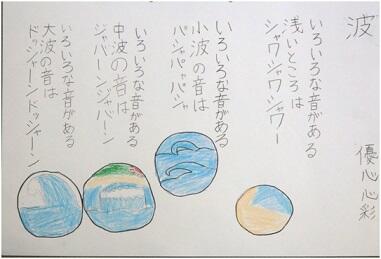 波
優心心彩
いろいろな音がある
浅いところは
シャワシャワシャワー
いろいろな音がある
小波の音は
パシャパャパシャ
いろいろな音がある
中波の音は
ジャバーンジャバーン
いろいろな音がある
大波の音は
ドッシャーンドッシャーン